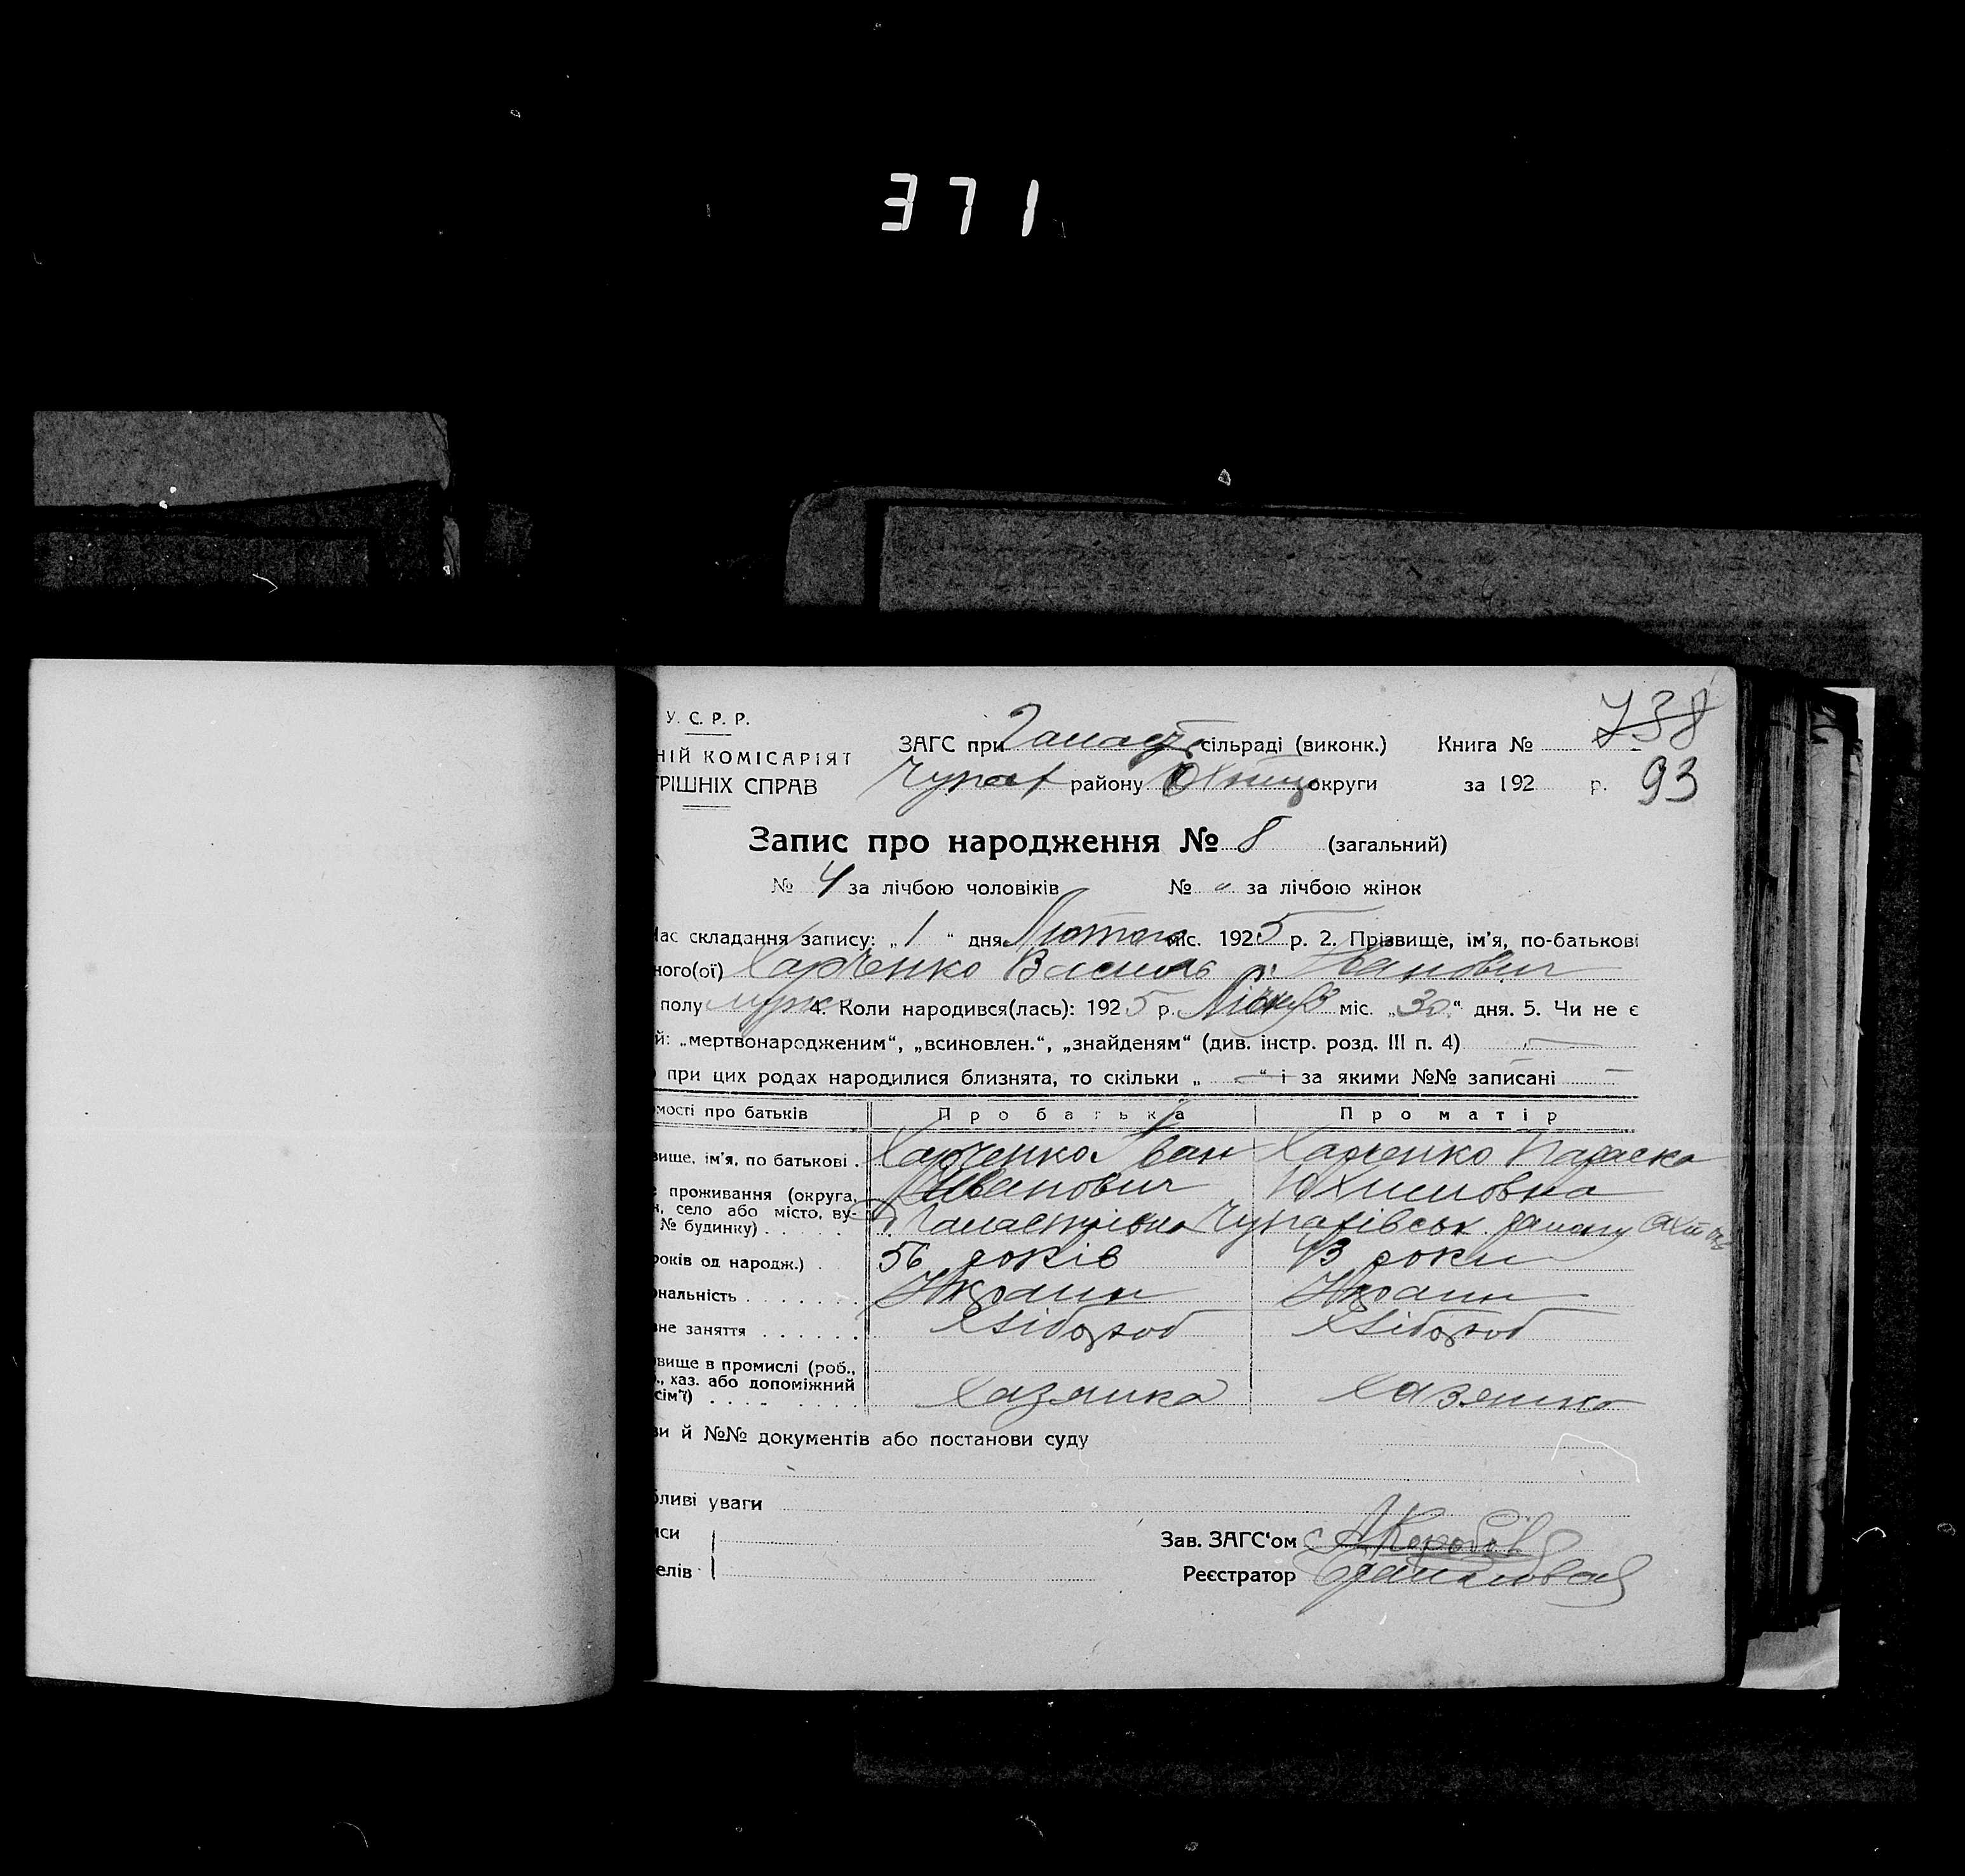 371
738
У. С. Р. Р.
НІЙ КОМІСАРІЯТ
РІШНІХ СПРАВ
ЗАГС при сільраді (виконк.) Книга №
району округи за 192 р. 93
Запис про народження № 8 (загальний)
№ 4 за лічбою чоловіків № " за лічбою жінок
Час складання запису: „1" дня Лютого міс. 1925 р. 2. Прізвище, ім'я, по-батькові
ного(ої) Харченко Василь Иванович
полу муж. 4. Коли народився(лась): 1925 р. міс. „30." дня. 5. Чи не є
й: „мертвонародженим“, „всиновлен.“, „знайденям“ (див. інстр. розд. III п. 4) —
при цих родах народилися близнята, то скільки „ — “ і за якими №№ записані —
мості про батьків Про батька Про матір
вище, ім'я, по батькові . Харченко Іван Харченко Параска
Иванович Юхимовна
проживання (округа,
н, село або місто, ву-
№ будинку) . . . . . Чупахівськ. району
років од народж.) . 56 років 43 роки
нальність . . . . . . . Украин Украин
вне заняття . . . . . . Хлібороб Хлібороб
вище в промислі (роб.,
., хаз. або допоміжний
сім'ї) . . . . . . . . Хазяика Хазяика
ви й №№ документів або постанови суду
бливі уваги
иси
елів
Зав. ЗАГС‘ом
Реєстратор